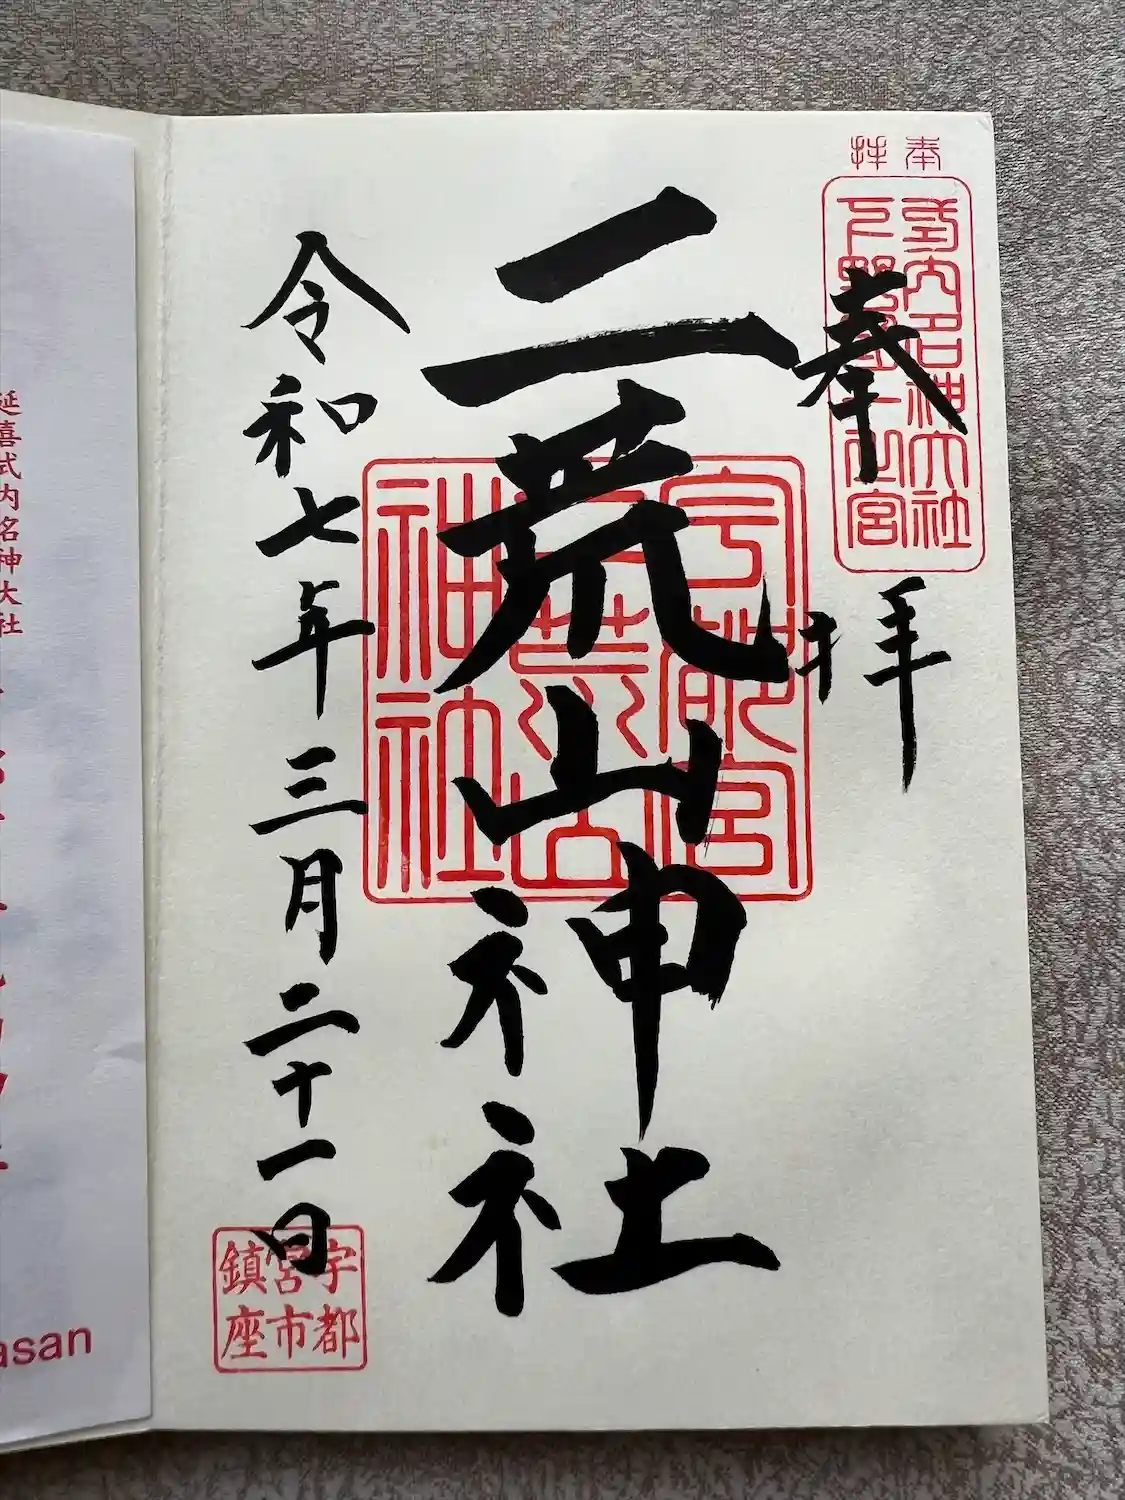 奉拝
式内名神大社
下野国一之宮
奉拝
二荒山神社
宇都宮
二荒山
神社
令和七年三月二十一日
宇都
宮市
鎮座
延喜式内名神大社
asan